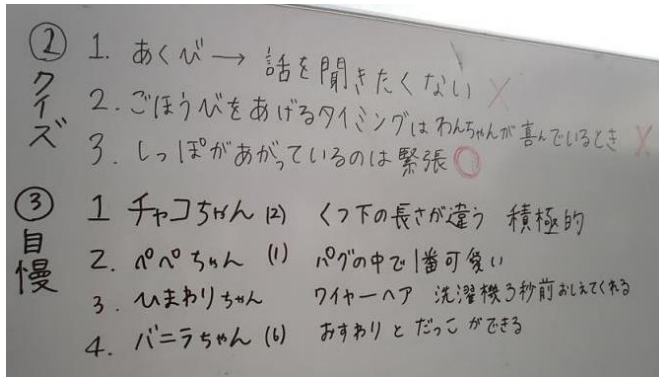 ② クイズ
1. あくび → 話を聞きたくない ×
2. ごほうびをあげるタイミングはわんちゃんが喜んでいるとき ×
3. しっぽがあがっているのは緊張 ○
③ 自慢
1 チャコちゃん (2) くつ下の長さが違う 積極的
2. ペペちゃん (1) パグの中で1番可愛い
3. ひまわりちゃん ワイヤーヘア 洗濯機3秒前おしえてくれる
4. バニラちゃん (6) おすわりとだっこができる